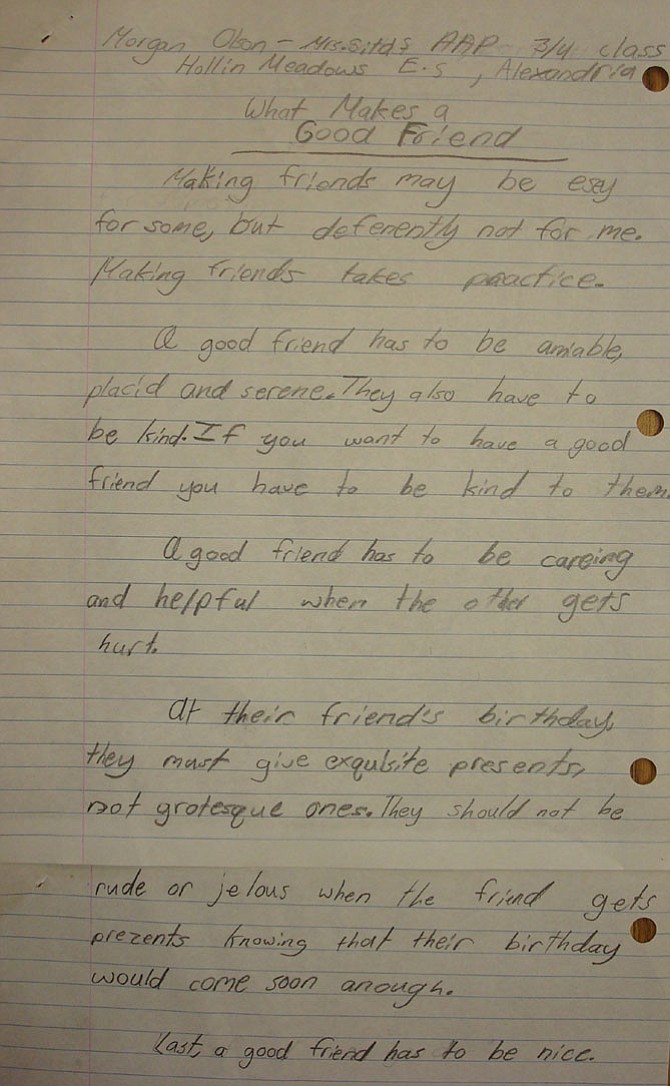 Morgan Olson - Mrs. Sitd's AAP 3/4 class
Hollin Meadows E.S, Alexandria
What Makes a
Good Friend
Making friends may be esey
for some, but deferently not for me.
Making friends takes practice.
A good friend has to be amiable,
placid and serene. They also have to
be kind. If you want to have a good
friend you have to be kind to them.
A good friend has to be careing
and helpful when the other gets
hurt.
At their friend's birthday,
they must give exquisite presents,
not grotesque ones. They should not be
rude or jelous when the friend gets
prezents knowing that their birthday
would come soon anough.
Last, a good friend has to be nice.